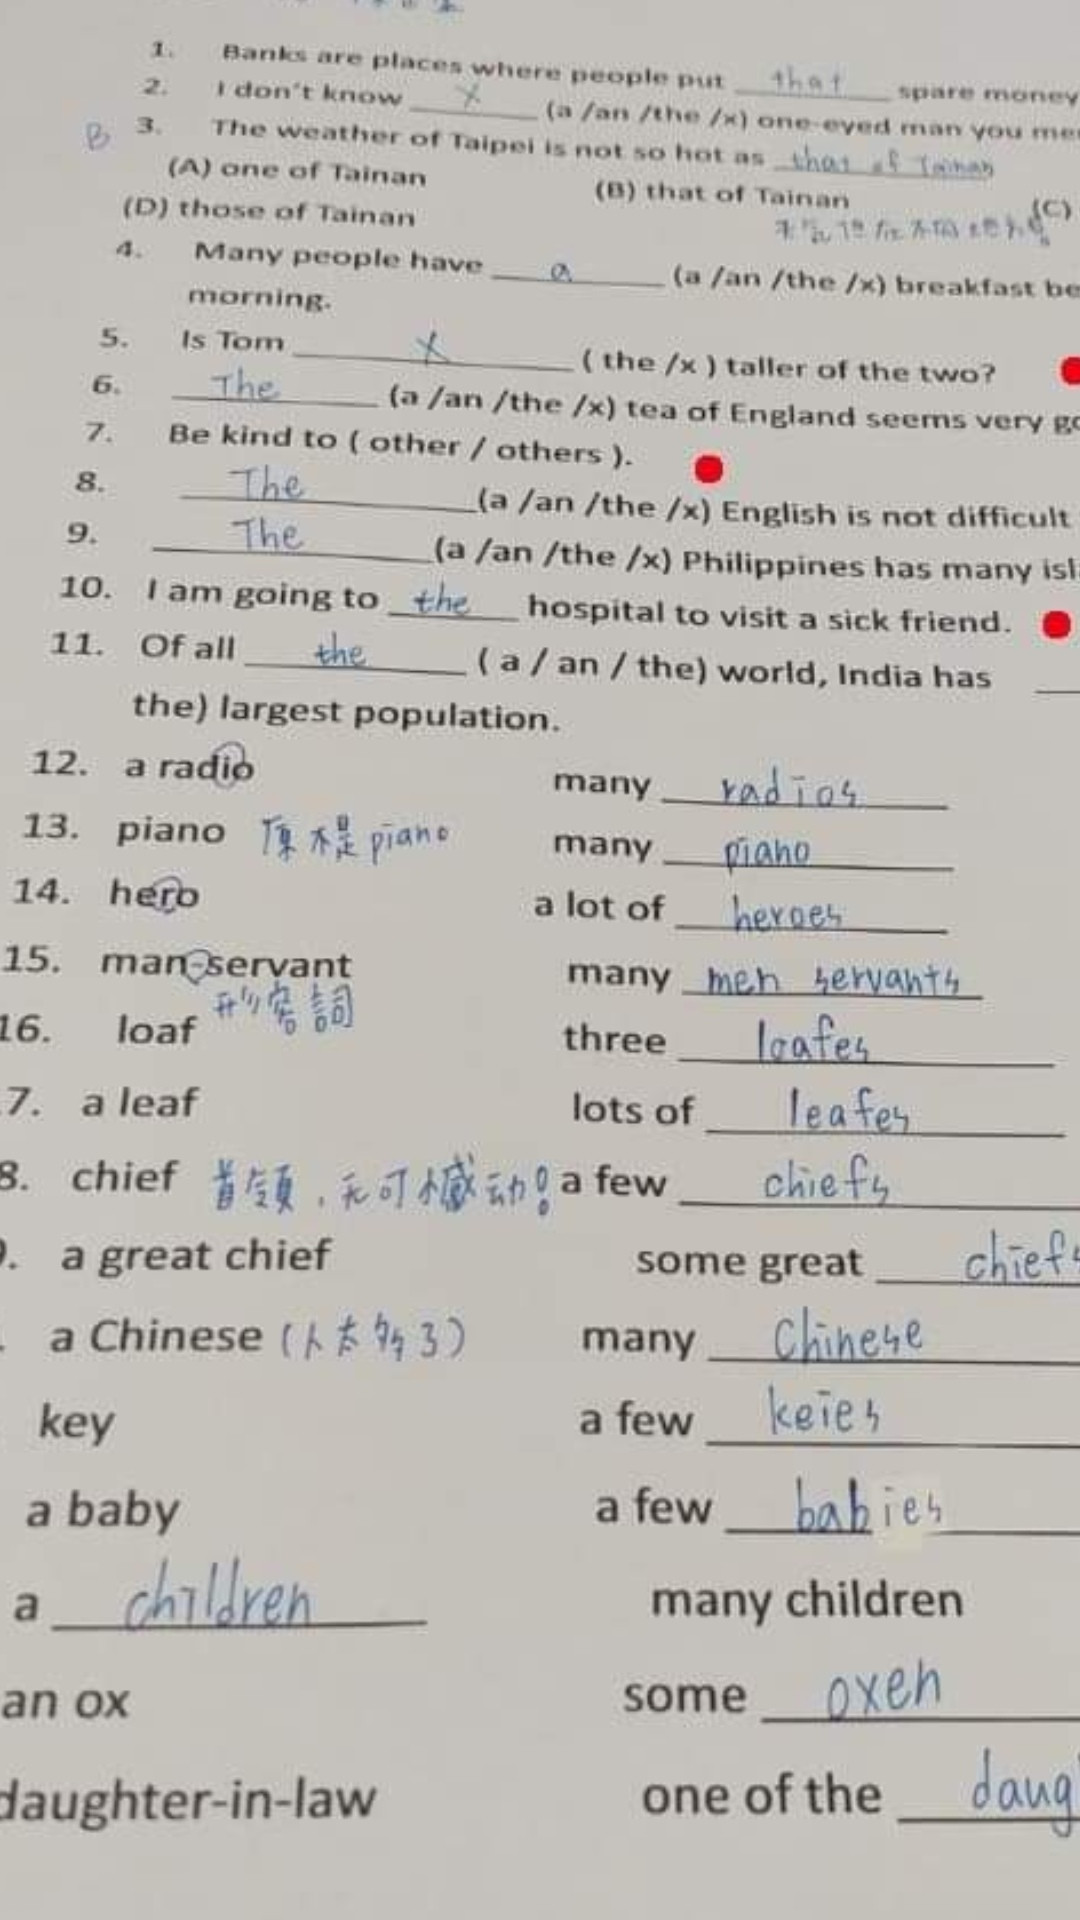 1. Banks are places where people put that spare money
2. I don't know x (a /an /the /x) one-eyed man you me
B 3. The weather of Taipei is not so hot as that of Tainan
(A) one of Tainan (B) that of Tainan (C)
(D) those of Tainan
4. Many people have a (a /an /the /x) breakfast be
morning.
5. Is Tom x ( the /x ) taller of the two?
6. The (a /an /the /x) tea of England seems very go
7. Be kind to ( other / others ).
8. The (a /an /the /x) English is not difficult
9. The (a /an /the /x) Philippines has many isl
10. I am going to the hospital to visit a sick friend.
11. Of all the ( a / an / the) world, India has
the) largest population.
12. a radio many radios
13. piano 原本是piano many piano
14. hero a lot of heroes
15. man-servant many men servants
形容詞
16. loaf three loafes
7. a leaf lots of leafes
8. chief 首領,无可撼动! a few chiefs
. a great chief some great chiefs
a Chinese (人太多了) many Chinese
key a few keies
a baby a few babies
a children many children
an ox some oxen
daughter-in-law one of the daug